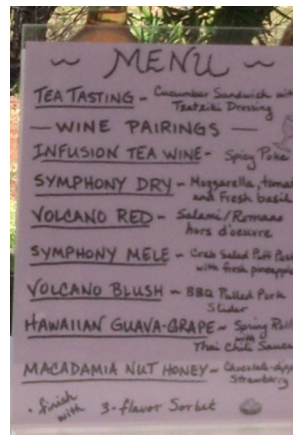 ~ MENU ~
TEA TASTING - Cucumber Sandwich with
Tzatziki Dressing
— WINE PAIRINGS —
INFUSION TEA WINE - Spicy Poke
SYMPHONY DRY - Mozzarella, tomato
and Fresh basil
VOLCANO RED - Salami/Romano
hors d'oeuvre
SYMPHONY MELE - Crab Salad Puff Past
with fresh pineapple
VOLCANO BLUSH - BBQ Pulled Pork
Slider
HAWAIIAN GUAVA-GRAPE - Spring Roll
with
Thai Chili Sauce
MACADAMIA NUT HONEY - Chocolate-dipp
Strawberry
• finish
with 3-flavor Sorbet